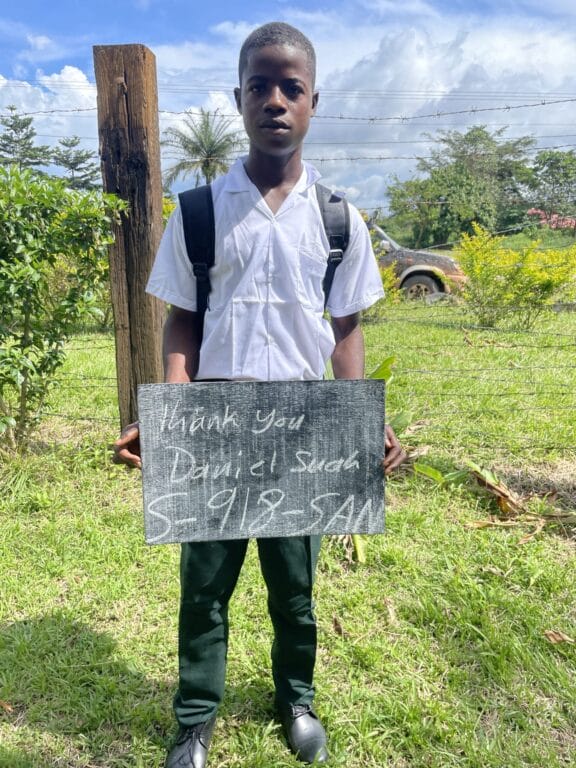 Thank You
Daniel Suah
S-918-SAN